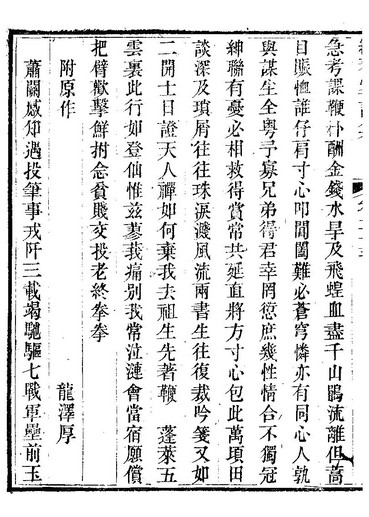 急考課鞭扑酬金錢水旱及飛蝗血盡千山鵑流離但蒿
目賑恤誰仔肩寸心叩閶闔難必蒼穹憐亦有同心人孰
與謀生全粤予寡兄弟得君幸罔愆庶幾性情合不獨冠
紳聯有憂必相救得賞常共延直將方寸心包此萬頃田
談深及瑣屑往往珠淚濺風流兩書生往復裁吟箋又如
二開士日證天人禪如何棄我去祖生先著鞭　蓬萊五
雲裏此行如登仙惟茲蓼莪痛別我常泣漣會當宿願償
把臂歡擊鮮拊念貧賤交投老終拳拳
附原作　龍澤厚
蕭關感知遇投筆事戎阡三載竭馳驅七戰軍壘前玉